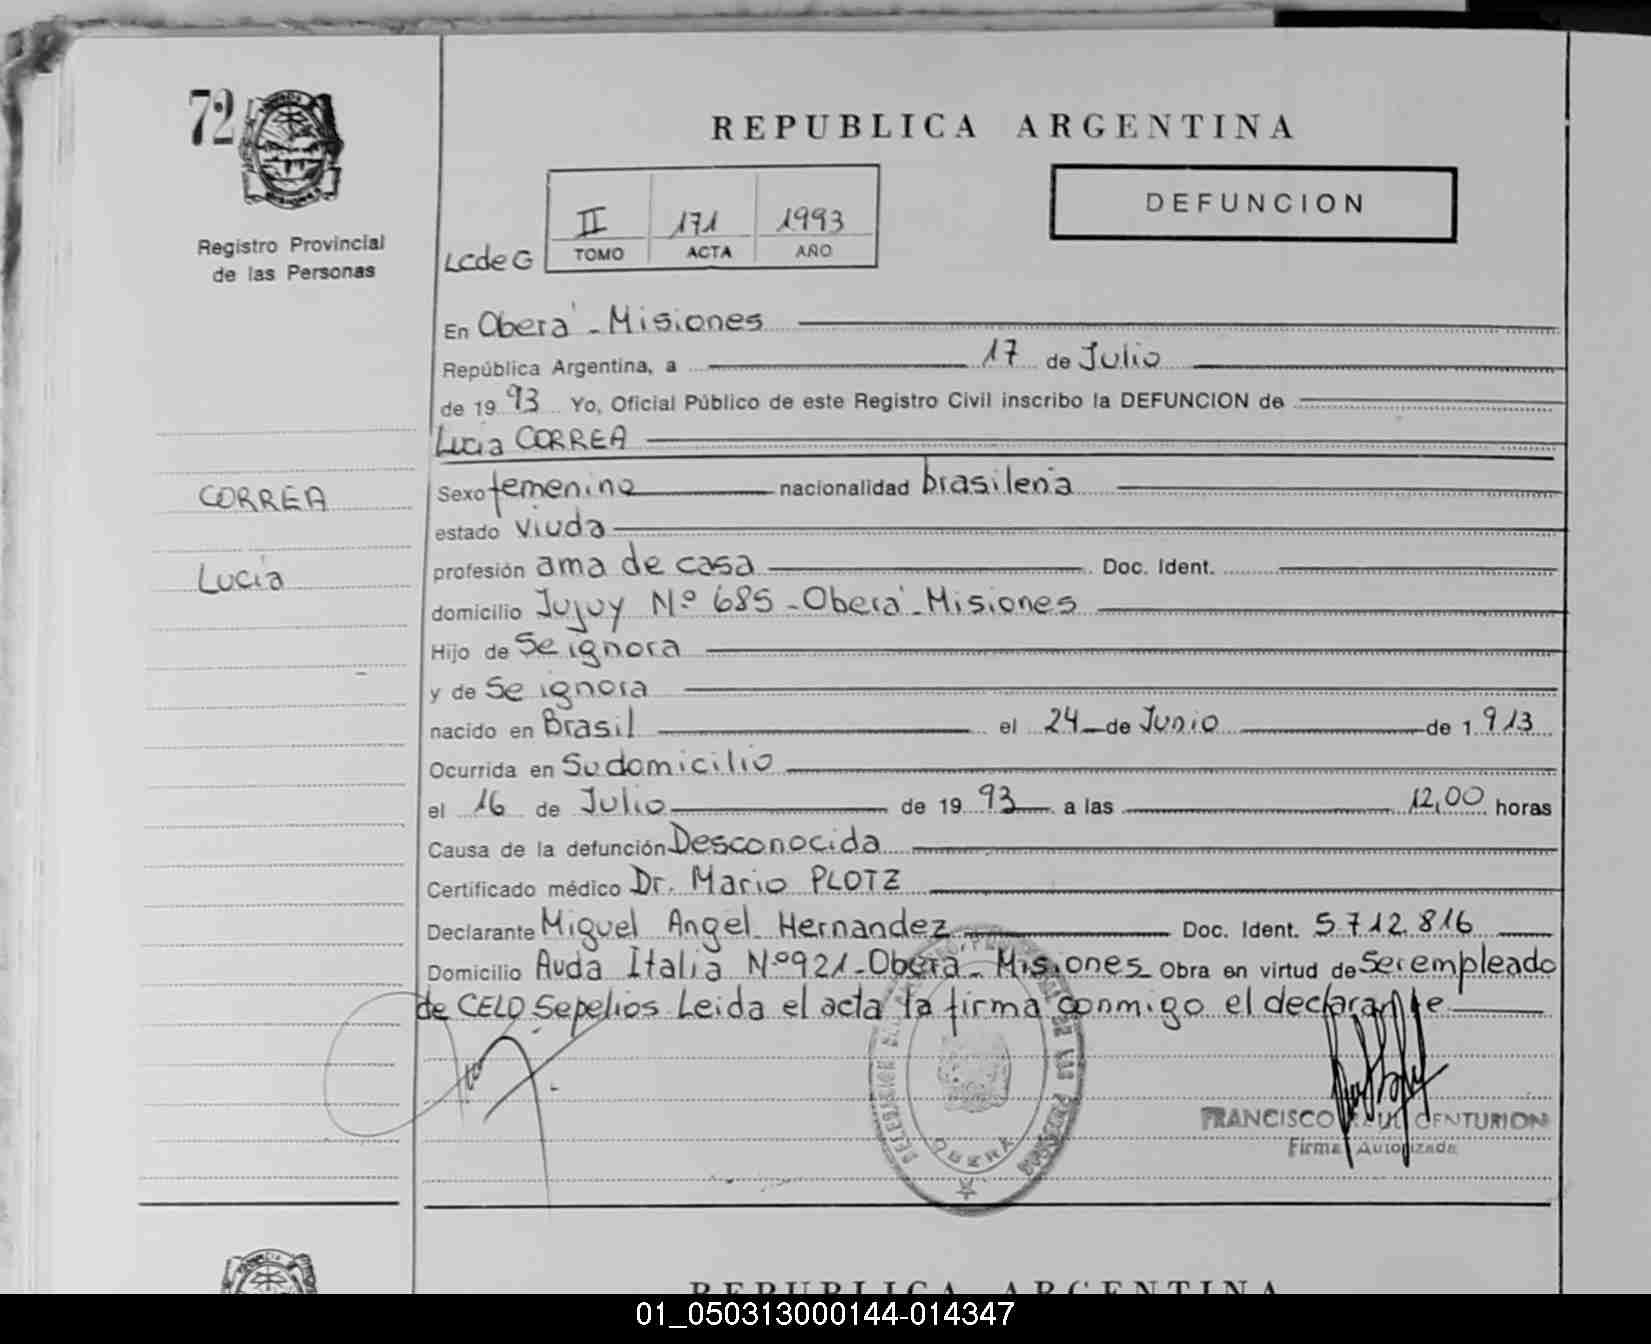 72
Registro Provincial
de las Personas
REPUBLICA ARGENTINA
DEFUNCION
LCdeG
II 171 1993
TOMO ACTA AÑO
En Oberá - Misiones
República Argentina, a 17 de Julio
de 19 93 Yo, Oficial Público de este Registro Civil inscribo la DEFUNCION de
Lucia CORREA
CORREA
Lucia
Sexo femenino nacionalidad brasileña
estado viuda
profesión ama de casa Doc. Ident.
domicilio Jujuy Nº 685 - Oberá - Misiones
Hijo de Se ignora
y de Se ignora
nacido en Brasil el 24 de Junio de 1.913
Ocurrida en Su domicilio
el 16 de Julio de 19 93 a las 12,00 horas
Causa de la defunción Desconocida
Certificado médico Dr. Mario PLOTZ
Declarante Miguel Angel Hernandez Doc. Ident. 5.712.816
Domicilio Avda Italia Nº 921 - Oberá - Misiones Obra en virtud de Ser empleado
de CELO Sepelios Leida el acta la firma conmigo el declarante
OBERA
FRANCISCO RAUL CENTURION
Firma Autorizada
REPUBLICA ARGENTINA
01_050313000144-014347